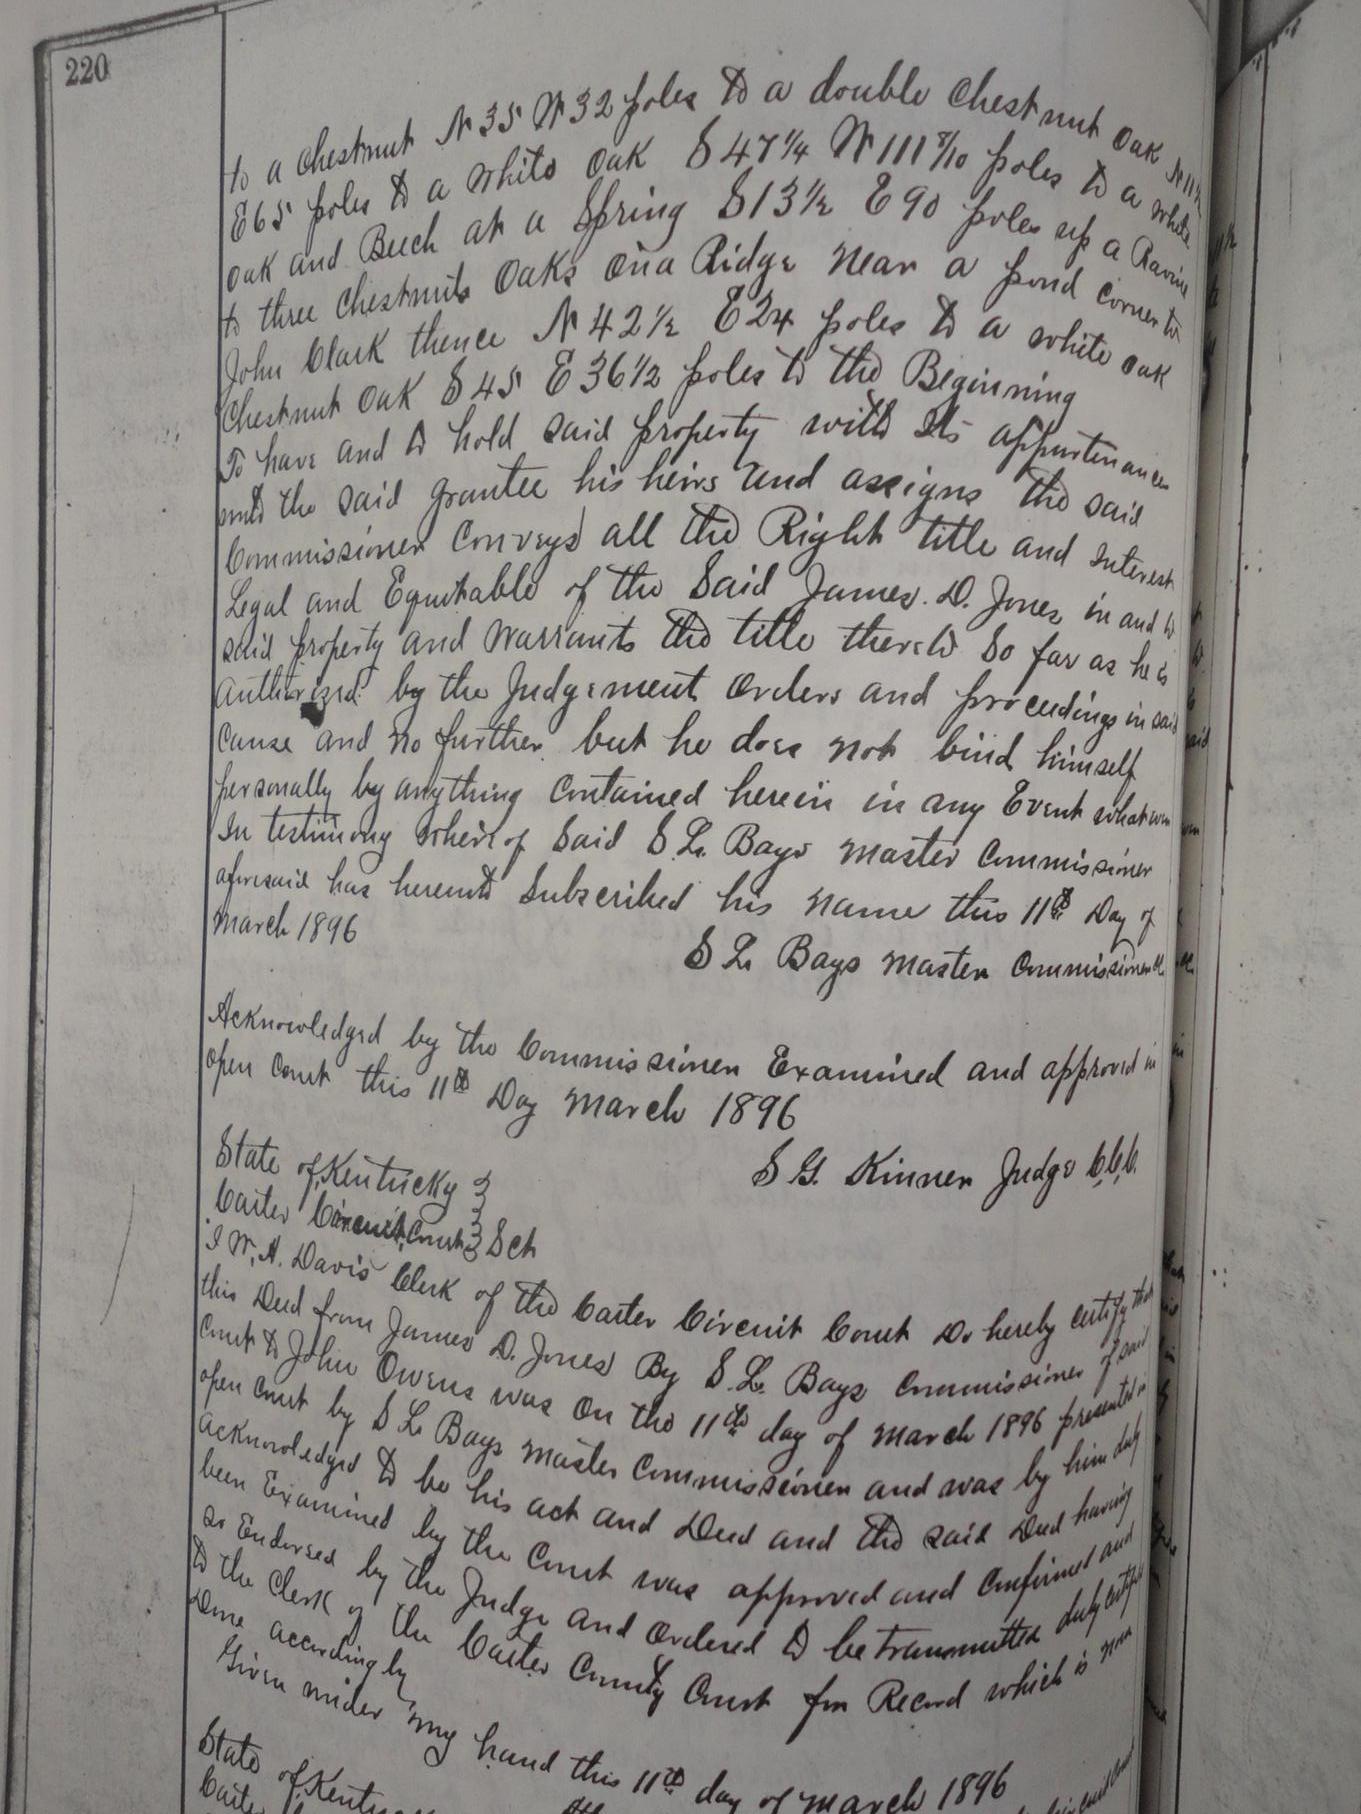 220
to a chestnut N 35 W 32 poles to a double chestnut oak
E 65 poles to a white oak S 47 1/4 W 111 8/10 poles to a white
oak and Beech at a Spring S 13 1/2 E 90 poles up a Ravine
to three chestnuts oaks on a Ridge near a pond corner to
John Clark thence N 42 1/2 E 24 poles to a white oak
chestnut oak S 45 E 36 1/2 poles to the Beginning
To have and to hold said property with Its appurtenances
unto the said grantee his heirs and assigns the said
Commissioner conveys all the Right title and interest
Legal and Equitable of the Said James. D. Jones in and to
said property and warrants the title thereto So far as he is
authorized by the Judgement orders and proceedings in said
cause and no further but he does not bind himself
personally by anything contained herein in any Event
In testimony whereof Said S. L. Bays master commissioner
aforesaid has hereunto subscribed his name this 11th Day of
march 1896
S L Bays master commissioner
Acknowledged by the Commissioner Examined and approved in
open court this 11th Day march 1896
S G. Kinner Judge C.C.C.
State of Kentucky
Carter Circuit Court Sct
I W. H. Davis Clerk of the Carter Circuit Court Do hereby certify that
this Deed from James D. Jones By S. L. Bays commissioner of said
court to John Owens was on the 11th day of march 1896 presented in
open court by S L Bays master commissioner and was by him duly
acknowledged to be his act and Deed and the said Deed having
been Examined by the court was approved and confirmed and
so Endorsed by the Judge and ordered to be transmitted duly
to the Clerk of the Carter County Court for Record which is now
Done accordingly
Given under my hand this 11th day of march 1896
State of
Carter